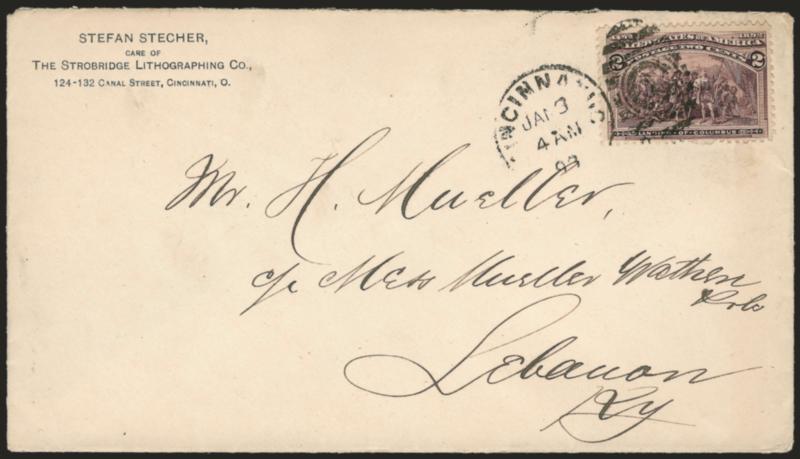 STEFAN STECHER,
CARE OF
THE STROBRIDGE LITHOGRAPHING CO.,
124-132 CANAL STREET, CINCINNATI, O.
1492 1892
UNITED STATES OF AMERICA
POSTAGE TWO CENTS
2 2
LANDING OF COLUMBUS
CINCINNATI
JAN 3
4 AM
Mr. H. Mueller,
c/o Mess Mueller Wathen
Lebanon
Ky